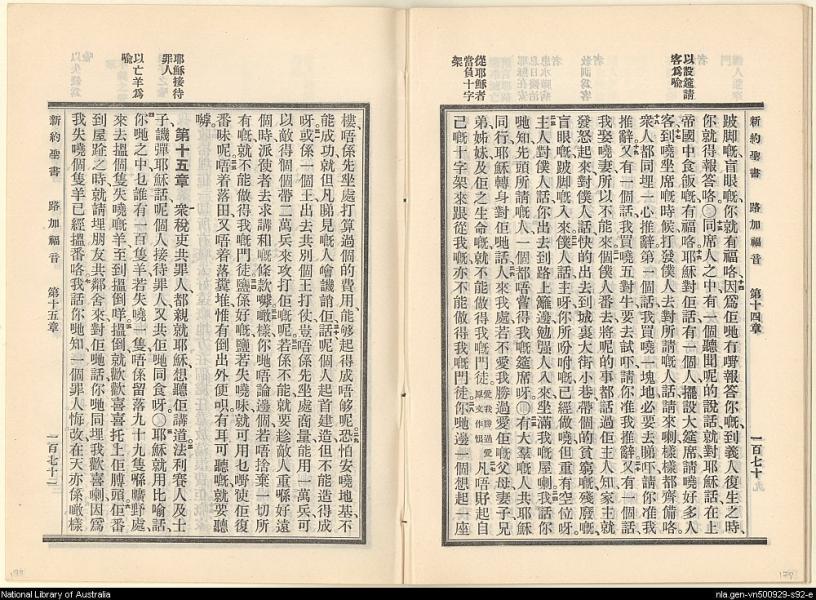 新約聖書 路加福音 第十四章 一百七十
以設筵請
客爲喩
從耶穌者
當負十字
架
跛脚嘅、盲眼嘅、你就有福咯、因爲佢哋有嘢報答你嘅、到義人復生之時、
你就得報答咯○同席人之中、有一個聽聞呢的說話、就對耶穌話、在上
帝國中食飯嘅有福咯、耶穌對佢話、有一個人、擺設大筵席、請嘵好多人、
客到嘵坐席嘅時候、打發僕人去對所請嘅人話、請來喇、樣樣都齊備咯、
衆人都同埋一心推辭、第一個話、我買嘵一塊地、必要去睇吓、請你准我
推辭、又有一個話、我買嘵五對牛、要去試吓、請你准我推辭、又有一個話、
我娶嘵妻、所以不能來、個僕人番去、將呢的事、都話過佢主人知、家主就
發怒起來、對僕人話、快的出去到城裏大街小巷、帶個的貧窮嘅、殘廢嘅、
盲眼嘅、跛脚嘅、入來、僕人話、主呀、你所吩咐嘅、已經做嘵、但重有空位呀、
主人對僕人話、你出去到路上籬邊、勉强人入來、坐滿我嘅屋喇、我話你
哋知、先頭所請嘅人、一個都唔嘗得我嘅筵席呀○有大羣嘅人、共耶穌
同行、耶穌轉身對佢哋話、人來我處、若不愛我勝過愛佢嘅父母妻子兄
弟姊妹及佢之生命嘅、就不能做得我嘅門徒、凡唔㪗起自
己嘅十字架來跟從我嘅、亦不能做得我嘅門徒、你哋邊一個想起一座
耶穌接待
罪人
以亡羊爲
喩
樓、唔係先坐處打算過個的費用、能够起得成唔够呢、恐怕安嘵地基、不
能成功、就但凡睇見嘅人、噲譏誚佢話、呢個人起首建造、但不能造得成
呀、或係一個王、出去共別個王打仗、豈唔係先坐處商量、能用一萬兵、可
以敵得個個帶二萬兵來攻打佢嘅呢、若係不能、就要趁敵人重喺好遠
個時、派使者去求講和嘅條款嚹、噉樣你哋唔論邊個、若唔捨棄一切所
有嘅、就不能做得我嘅門徒、鹽係好嘅、鹽若失嘵味、就可用乜嘢使佢復
番味呢、唔着落田、又唔着落糞堆、惟有倒出外便啫、有耳可聽嘅、就要聽
嚹
第十五章 衆稅吏共罪人、都親就耶穌、想聽佢講道、法利賽人及士
子譏彈耶穌話、呢個人接待罪人、又共佢哋同食呀○耶穌就用比喩話、
你哋之中、乜誰有一百隻羊、若失嘵一隻、唔係留落九十九隻喺曠野處、
來去搵個隻失嘵嘅羊、至到搵倒咩、搵倒、就歡歡喜喜托上佢膊頭、佢番
到屋跲之時、就請埋朋友共鄰舍來、對佢哋話、你哋同埋我歡喜喇、因爲
我失嘵個隻羊、已經搵番咯、我話你哋知、一個罪人悔改、在天亦係噉樣
新約聖書 路加福音 第十五章 一百七十一
National Library of Australia
nla.gen-vn500929-s92-e